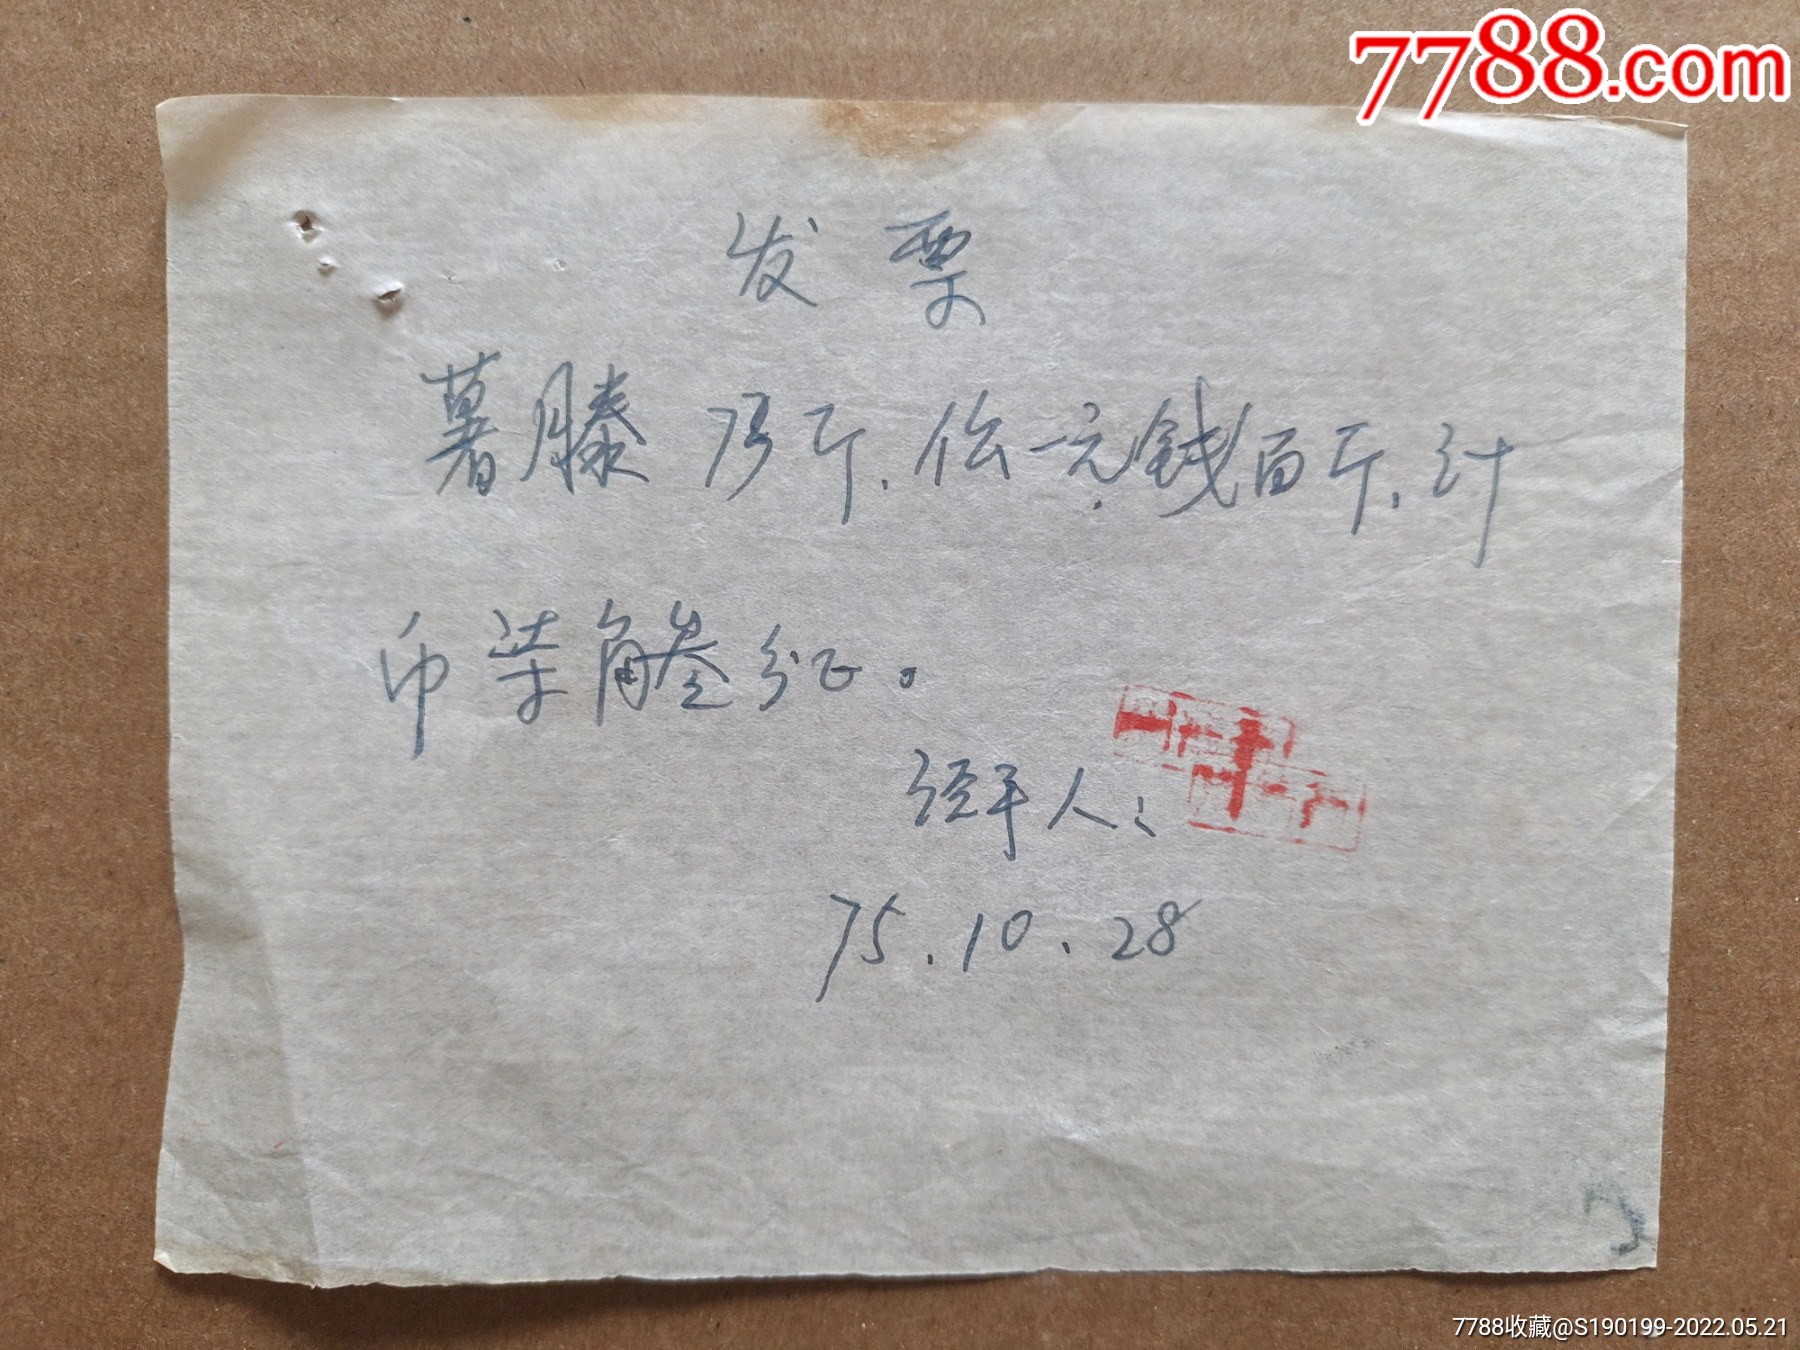 7788.com
发票
薯藤 73斤.价一元钱百斤.计
币柒角叁分正。
经手人：
75.10.28
7788收藏@S190199-2022.05.21